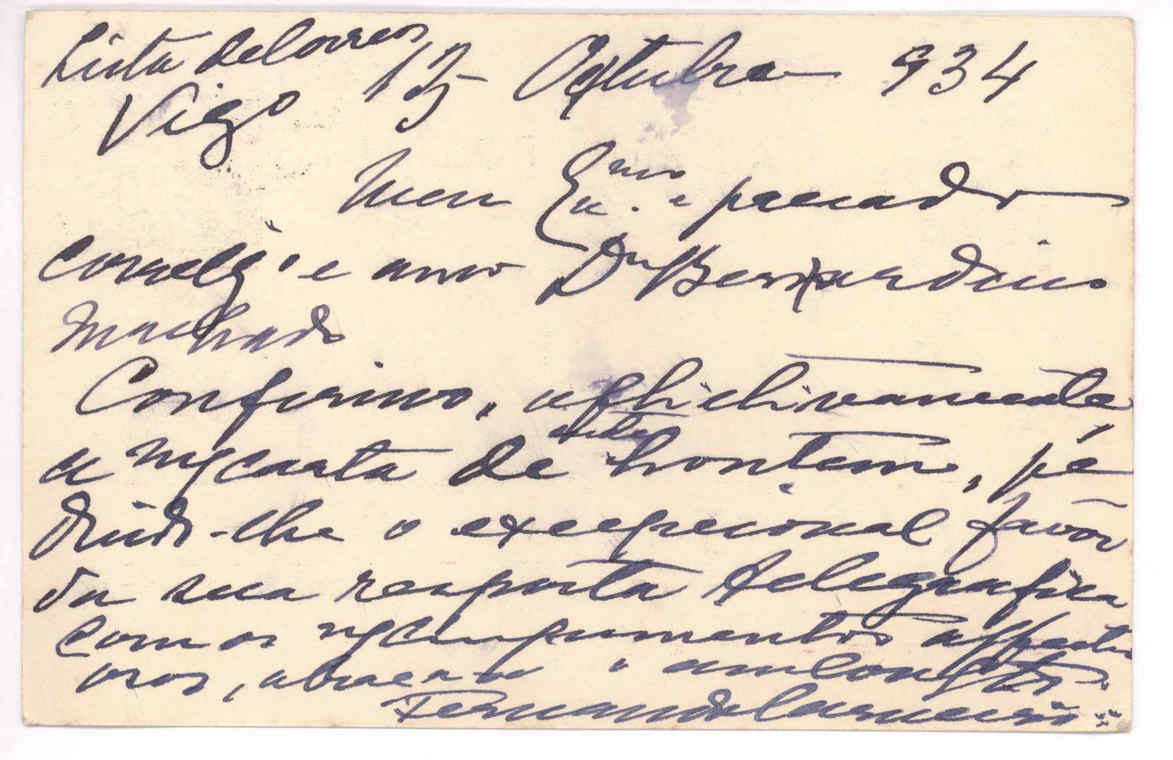 Lista de Correos 13 Octubre 934
Vigo
Meu Exmo. e prezado
correlg.º e amo Dr Bernardino
Machado
Confirmo, afflictivamente
a m/carta de ante hontem, pe
dindo-lhe o excepcional favôr
da sua resposta telegrafica
com os m/cumprimentos affectu
osos, abraça-o o am.º
Fernando Carneiro